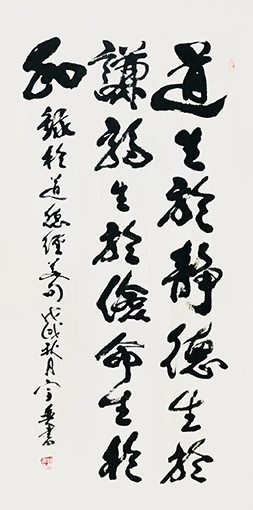 道生於靜德生於
謙福生於儉命生於
和
錄於道德經美句戊戌秋月